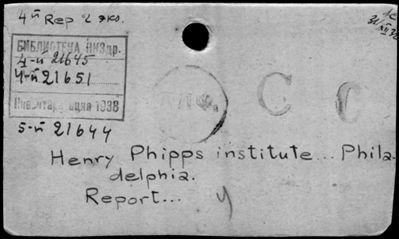 4й Rep 2 экз.
БИБЛИОТЕКА НИЗдр.
4-й 21645
4-й 21651
Инвентаризация 1938
5-й 21644
C C
Henry Phipps institute... Phila-
delphia.
Report...